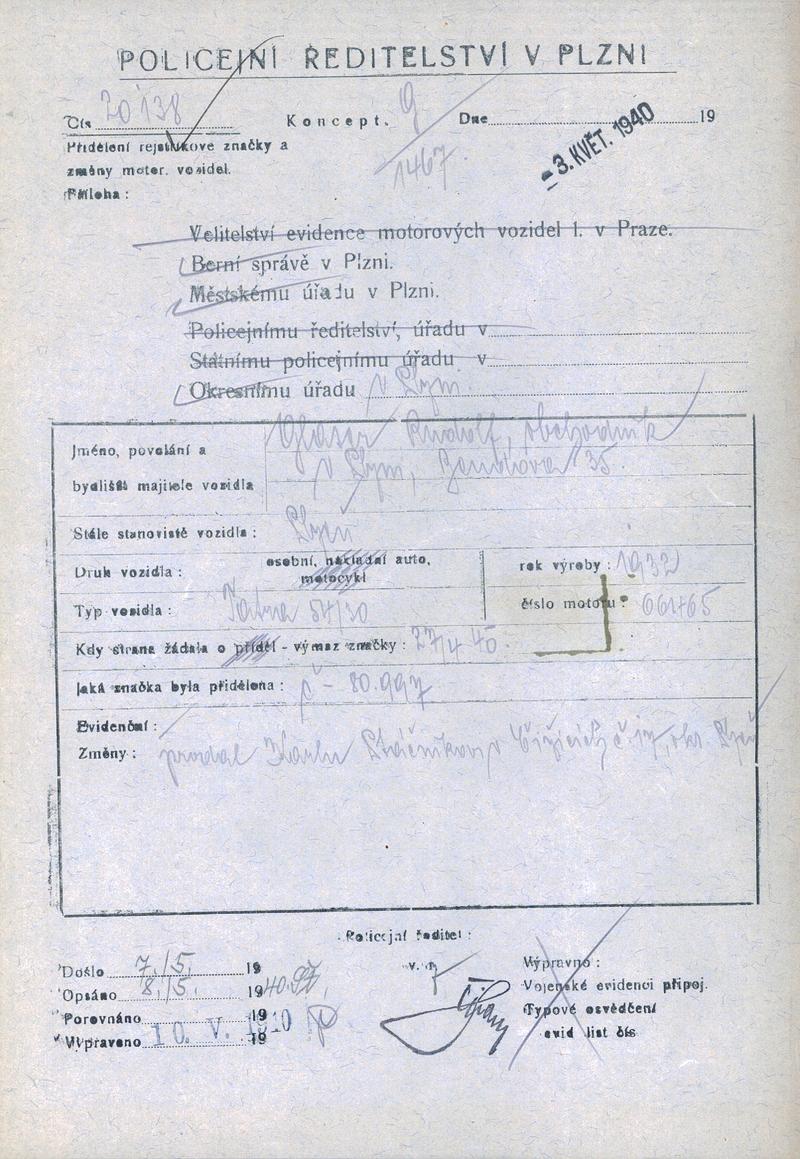 POLICEJNÍ ŘEDITELSTVÍ V PLZNI
Čís 20138 Koncept. Dne 19
9
1467
- 3. KVĚT. 1940
Přidělení rejstříkové značky a
změny motor. vozidel.
Příloha :
Velitelství evidence motorových vozidel I. v Praze.
Berní správě v Plzni.
Městskému úřadu v Plzni.
Policejnímu ředitelství, úřadu v
Státnímu policejnímu úřadu v
Okresnímu úřadu v Plzni
Jméno, povolání a
bydliště majitele vozidla
Rudolf, obchodník
v Plzni, 35.
Stálé stanoviště vozidla : Plzeň
Druh vozidla : osobní, nákladní auto,
motocykl
rok výroby : 1932
Typ vozidla : Tatra 54/30 číslo motoru :
Kdy strana žádala o příděl - výmaz značky : 27/4 40.
Jaká značka byla přidělena : č - 80.997
Evidenční :
Změny : prodal Karlu v č. 17, okr. Plzeň
Policejní ředitel :
v. r.
Došlo 7./5. 19
Opsáno 8./5. 1940
Porovnáno 19
Vypraveno 10. V. 1940 19
Výpravno :
Vojenské evidenci připoj.
Typové osvědčení
evid list čís